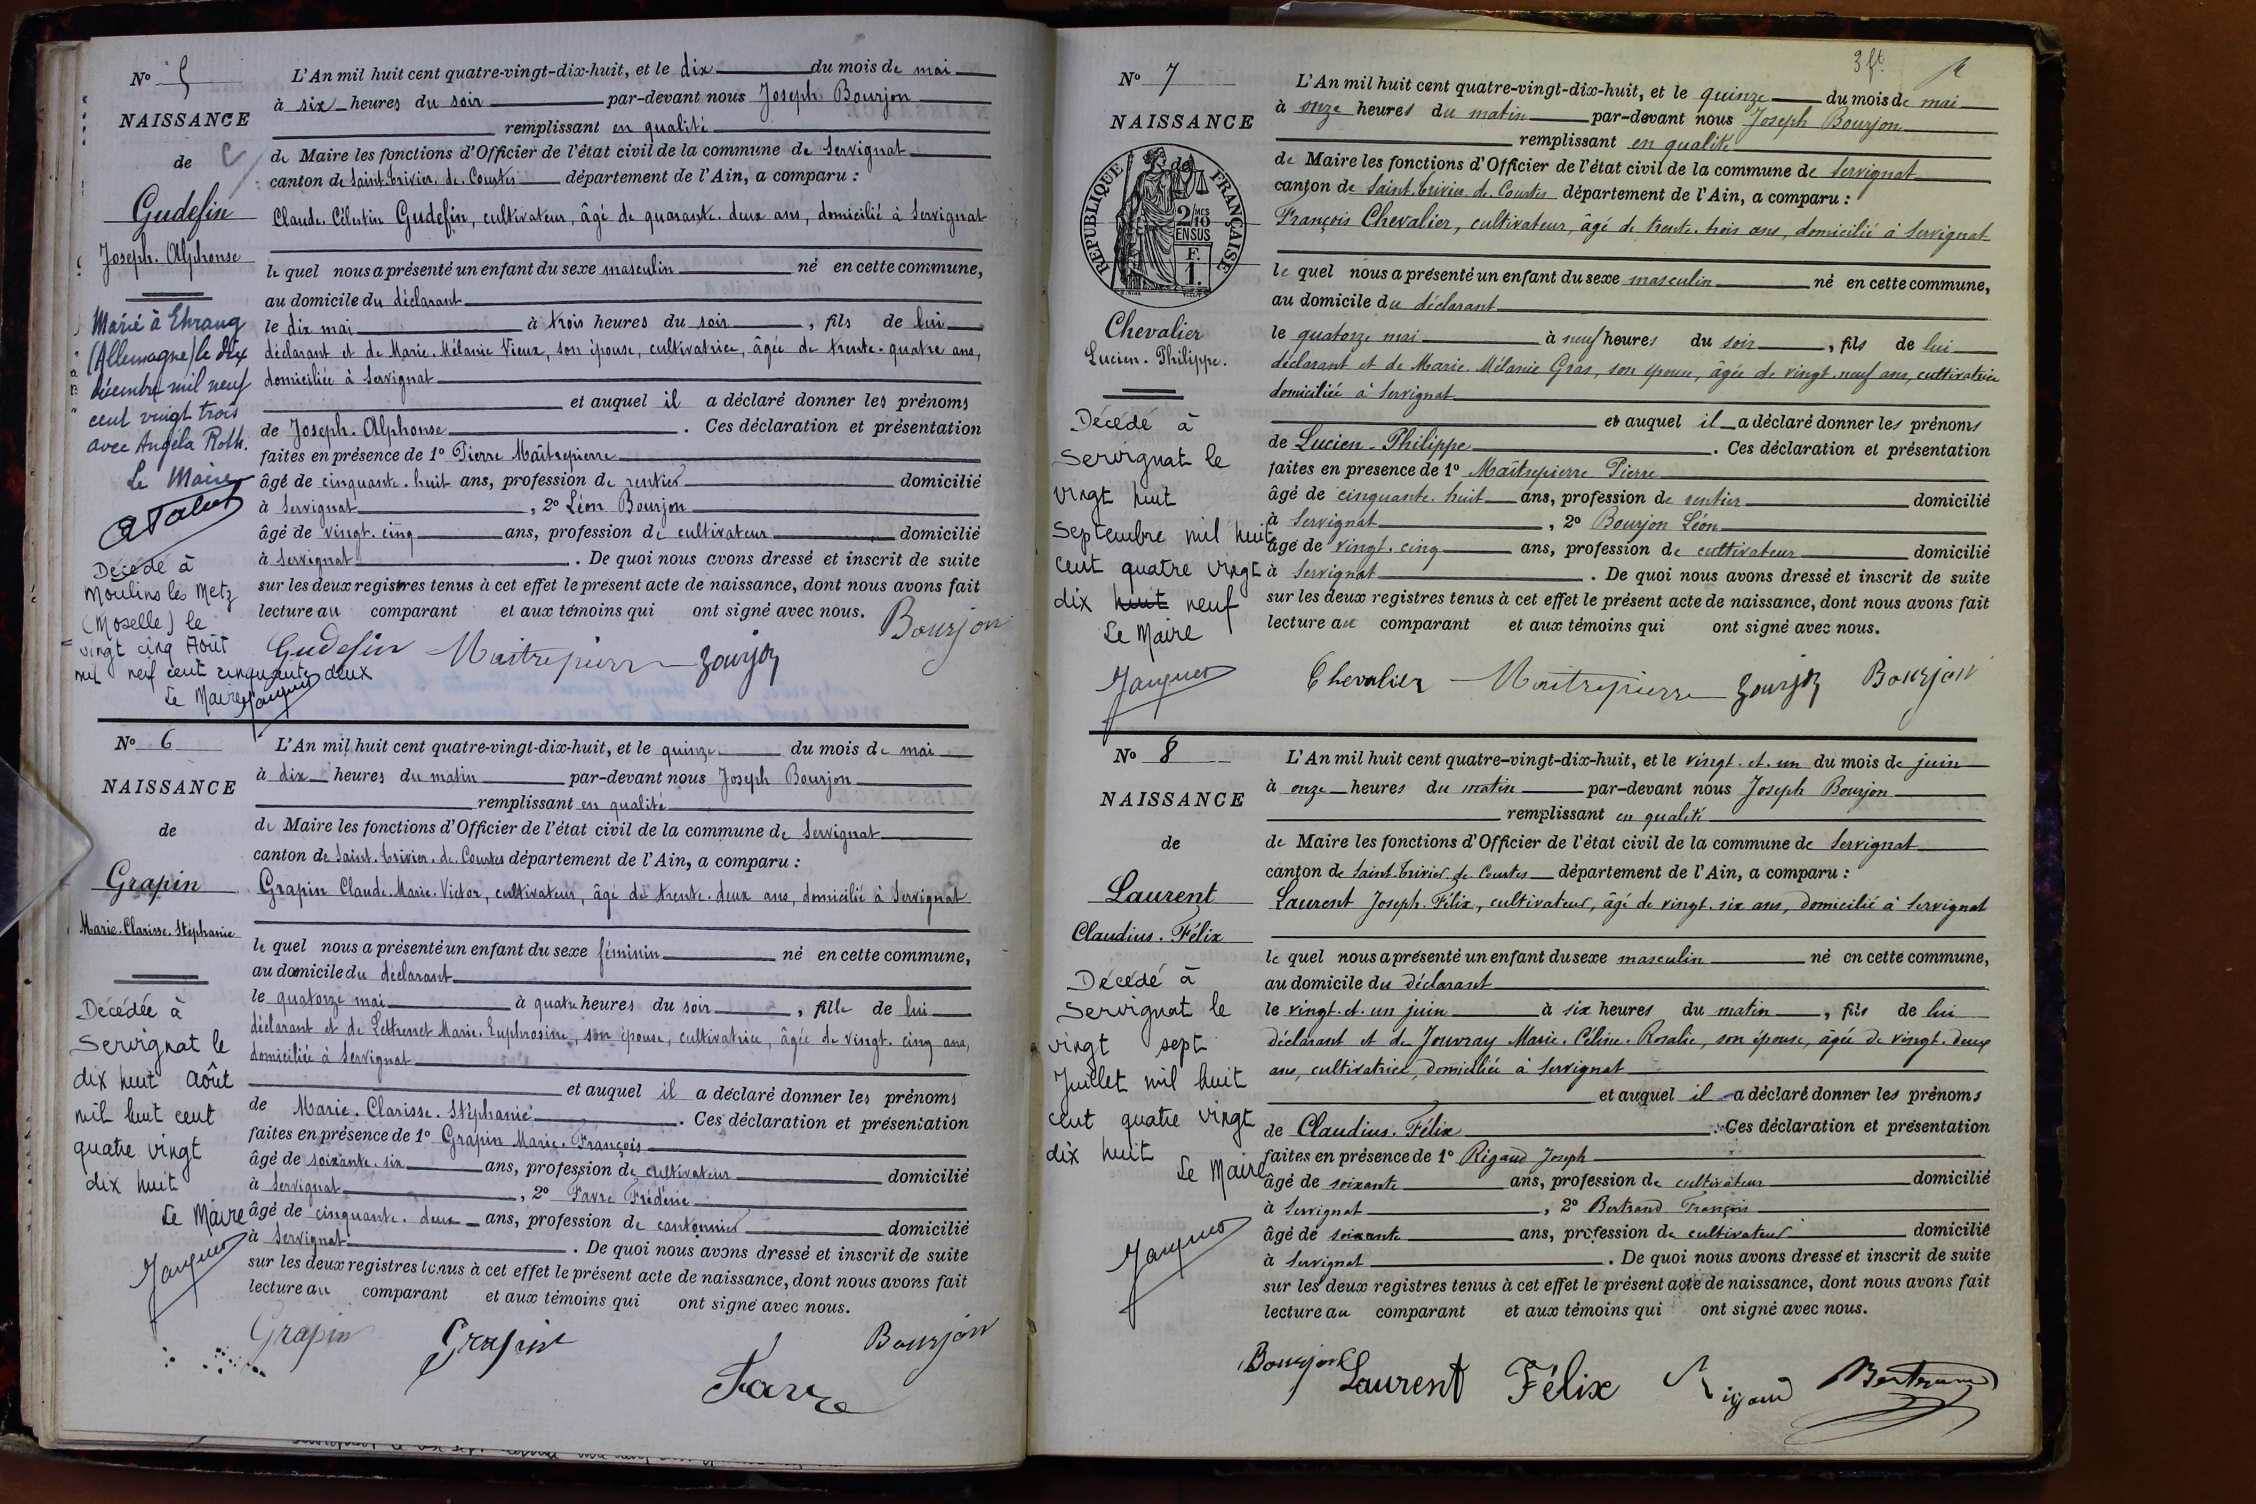 N° 5
NAISSANCE
de
Gudefin
Joseph. Alphonse
Marié à Ehrang
(Allemagne) le dix
décembre mil neuf
cent vingt trois
avec Angéla Roth.
Le Maire
Décédé à
Moulins les Metz
(Moselle) le
vingt cinq Août
mil neuf cent cinquante deux
Le Maire
L'An mil huit cent quatre-vingt-dix-huit, et le dix du mois de mai
à six heures du soir par-devant nous Joseph Bourjon
remplissant en qualité
de Maire les fonctions d'Officier de l'état civil de la commune de Servignat
canton de Saint. Trivier. de. Courtes département de l'Ain, a comparu :
Claude. Célestin Gudefin, cultivateur, âgé de quarante. deux ans, domicilié à Servignat
le quel nous a présenté un enfant du sexe masculin né en cette commune,
au domicile du déclarant
le dix mai à trois heures du soir, fils de lui
déclarant et de Marie. Mélanie Vieux, son épouse, cultivatrice, âgée de trente. quatre ans,
domiciliée à Servignat
et auquel il a déclaré donner les prénoms
de Joseph. Alphonse. Ces déclaration et présentation
faites en présence de 1° Pierre Maîtrepierre
âgé de cinquante. huit ans, profession de rentier domicilié
à Servignat, 2° Léon Bourjon
âgé de vingt. cinq ans, profession de cultivateur domicilié
à Servignat. De quoi nous avons dressé et inscrit de suite
sur les deux registres tenus à cet effet le présent acte de naissance, dont nous avons fait
lecture au comparant et aux témoins qui ont signé avec nous.
Gudefin Maitrepierre Bourjon Bourjon
N° 6
NAISSANCE
de
Grapin
Marie. Clarisse. Stéphanie
Décédée à
Servignat le
dix huit Août
mil huit cent
quatre vingt
dix huit
Le Maire
Janquet
L'An mil huit cent quatre-vingt-dix-huit, et le quinze du mois de mai
à dix heures du matin par-devant nous Joseph Bourjon
remplissant en qualité
de Maire les fonctions d'Officier de l'état civil de la commune de Servignat
canton de Saint. Trivier. de. Courtes département de l'Ain, a comparu :
Grapin Claude. Marie. Victor, cultivateur, âgé de trente. deux ans, domicilié à Servignat
le quel nous a présenté un enfant du sexe féminin né en cette commune,
au domicile du déclarant
le quatorze mai à quatre heures du soir, fille de lui
déclarant et de Marie. Euphrosine, son épouse, cultivatrice, âgée de vingt. cinq ans,
domiciliée à Servignat
et auquel il a déclaré donner les prénoms
de Marie. Clarisse. Stéphanie. Ces déclaration et présentation
faites en présence de 1° Grapin Marie. François
âgé de soixante. six ans, profession de cultivateur domicilié
à Servignat, 2° Favre Frédéric
âgé de cinquante. deux ans, profession de cantonnier domicilié
à Servignat. De quoi nous avons dressé et inscrit de suite
sur les deux registres tenus à cet effet le présent acte de naissance, dont nous avons fait
lecture au comparant et aux témoins qui ont signé avec nous.
Grapin Grapin Bourjon
Favre
3 ft.
N° 7
NAISSANCE
de
REPUBLIQUE FRANÇAISE
2/10 MES
EN SUS
F.
1.
Chevalier
Lucien. Philippe.
Décédé à
Servignat le
vingt huit
Septembre mil huit
cent quatre vingt
dix huit neuf
Le Maire
L'An mil huit cent quatre-vingt-dix-huit, et le quinze du mois de mai
à onze heures du matin par-devant nous Joseph Bourjon
remplissant en qualité
de Maire les fonctions d'Officier de l'état civil de la commune de Servignat
canton de Saint. Trivier. de. Courtes département de l'Ain, a comparu :
François Chevalier, cultivateur, âgé de trente. trois ans, domicilié à Servignat
le quel nous a présenté un enfant du sexe masculin né en cette commune,
au domicile du déclarant
le quatorze mai à neuf heures du soir, fils de lui
déclarant et de Marie. Mélanie Gras, son épouse, âgée de vingt. neuf ans, cultivatrice
domiciliée à Servignat
et auquel il a déclaré donner les prénoms
de Lucien. Philippe. Ces déclaration et présentation
faites en présence de 1° Maîtrepierre Pierre
âgé de cinquante. huit ans, profession de rentier domicilié
à Servignat, 2° Bourjon Léon
âgé de vingt. cinq ans, profession de cultivateur domicilié
à Servignat. De quoi nous avons dressé et inscrit de suite
sur les deux registres tenus à cet effet le présent acte de naissance, dont nous avons fait
lecture au comparant et aux témoins qui ont signé avec nous.
Chevalier Maitrepierre Bourjon Bourjon
N° 8
NAISSANCE
de
Laurent
Claudius. Félix
Décédé à
Servignat le
vingt sept
Juillet mil huit
cent quatre vingt
dix huit
Le Maire
L'An mil huit cent quatre-vingt-dix-huit, et le vingt. et. un du mois de juin
à onze heures du matin par-devant nous Joseph Bourjon
remplissant en qualité
de Maire les fonctions d'Officier de l'état civil de la commune de Servignat
canton de Saint. Trivier. de. Courtes département de l'Ain, a comparu :
Laurent Joseph. Félix, cultivateur, âgé de vingt. six ans, domicilié à Servignat
le quel nous a présenté un enfant du sexe masculin né en cette commune,
au domicile du déclarant
le vingt. et. un juin à six heures du matin, fils de lui
déclarant et de Jouvray Marie. Céline. Rosalie, son épouse, âgée de vingt. deux
ans, cultivatrice, domiciliée à Servignat
et auquel il a déclaré donner les prénoms
de Claudius. Félix. Ces déclaration et présentation
faites en présence de 1° Rigaud Joseph
âgé de soixante ans, profession de cultivateur domicilié
à Servignat, 2° Bertrand François
âgé de soixante ans, profession de cultivateur domicilié
à Servignat. De quoi nous avons dressé et inscrit de suite
sur les deux registres tenus à cet effet le présent acte de naissance, dont nous avons fait
lecture au comparant et aux témoins qui ont signé avec nous.
Bourjon Laurent Félix Rigaud Bertrand